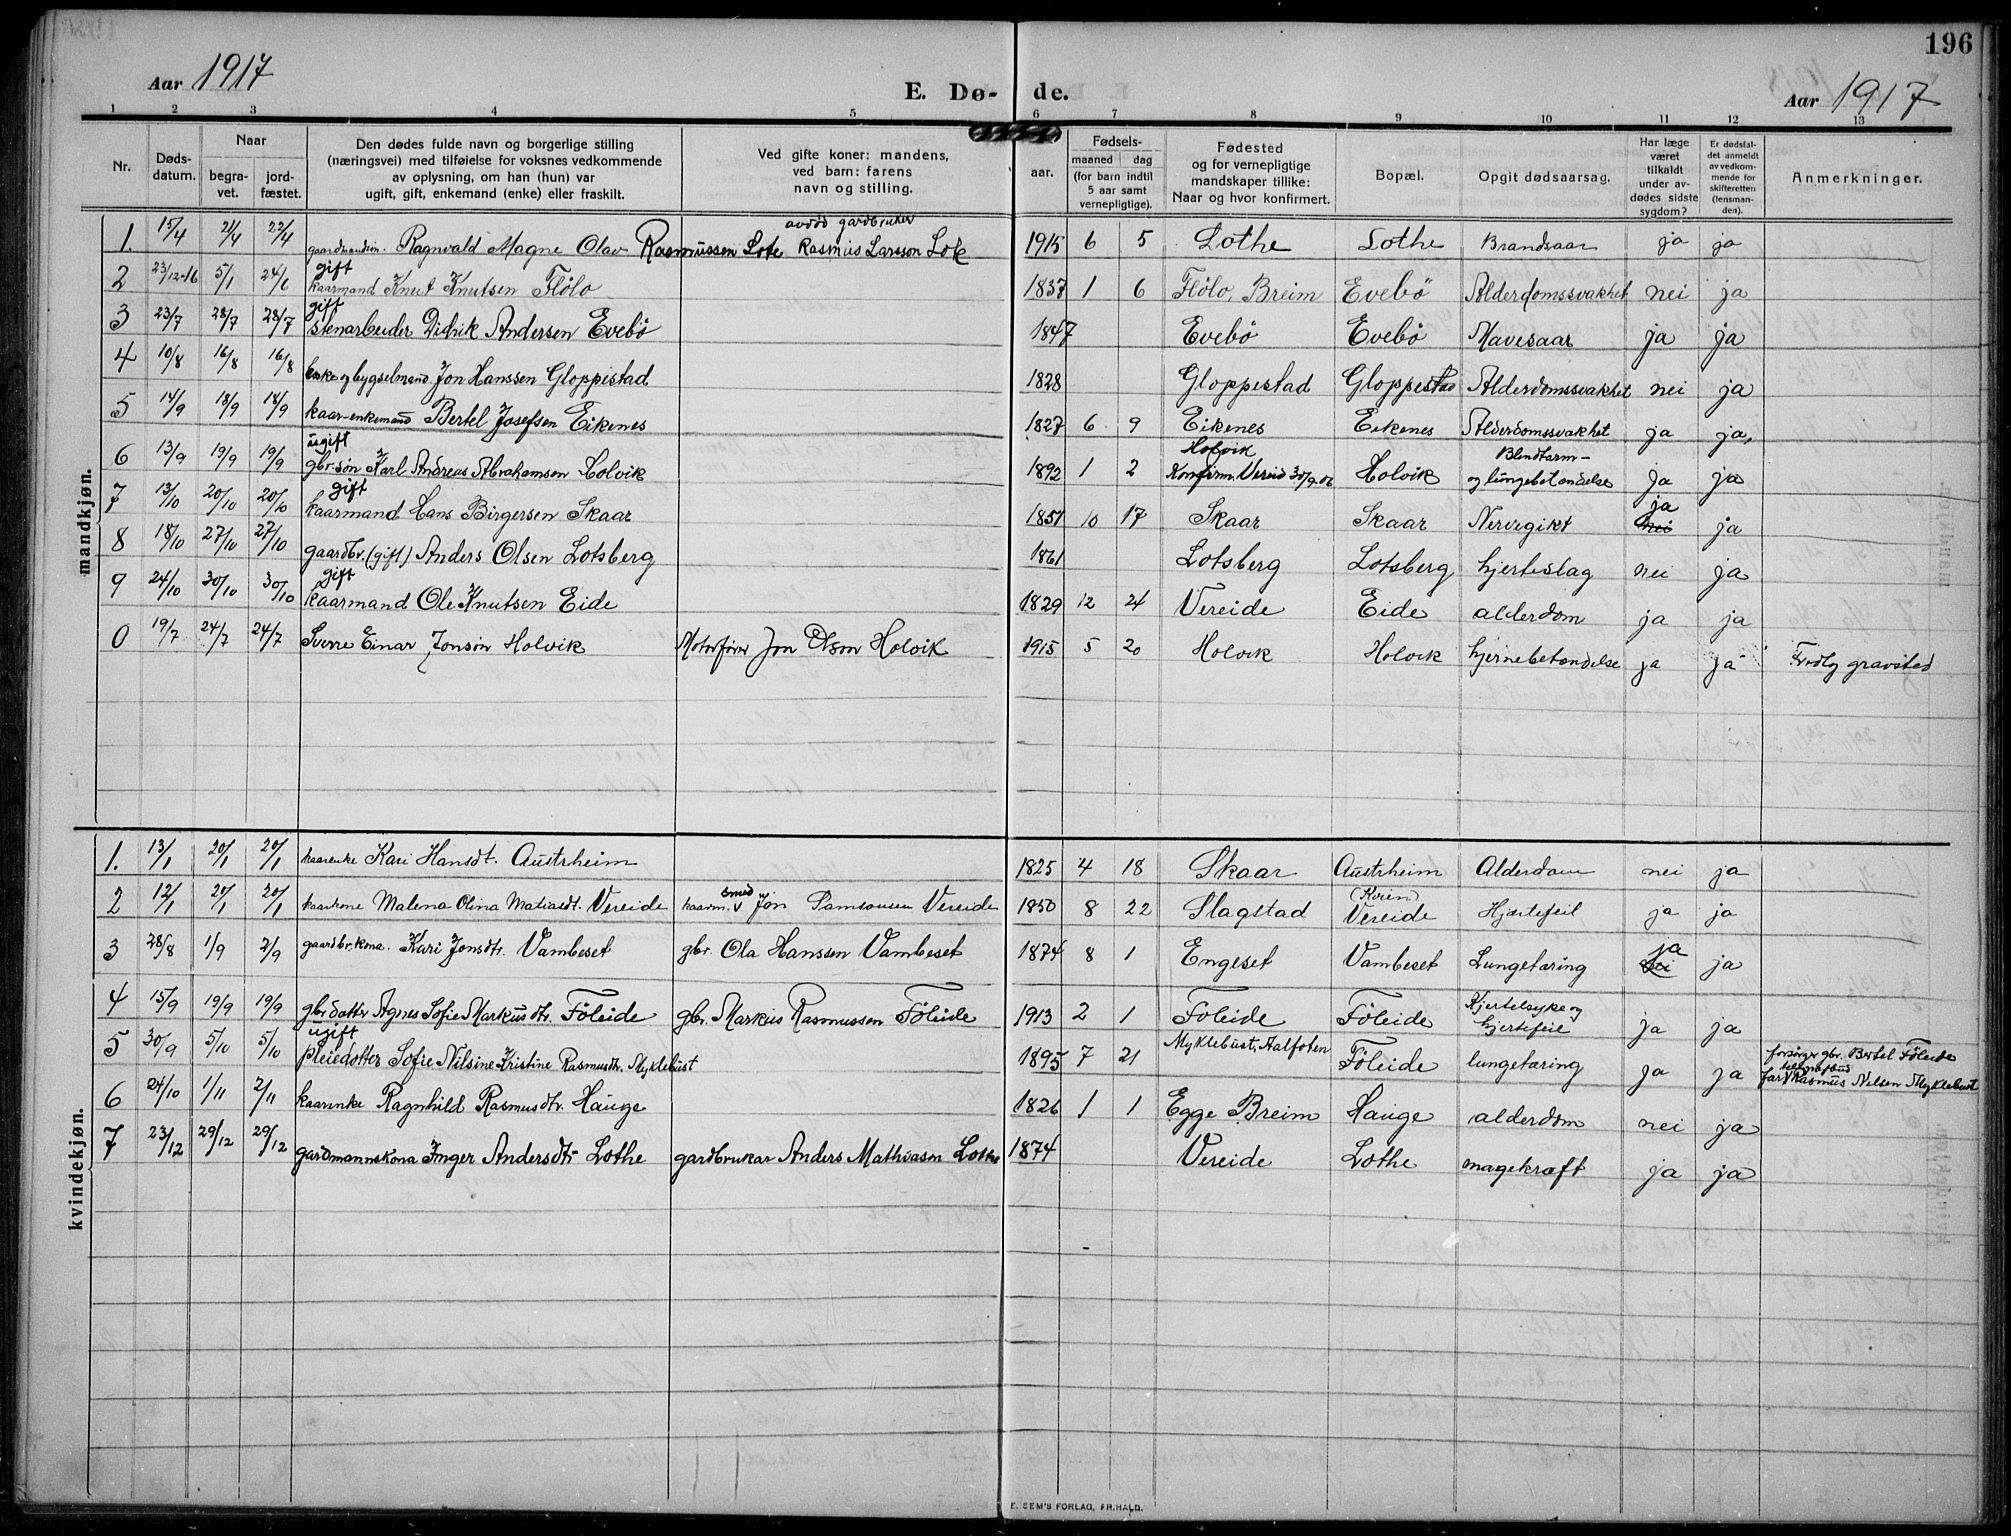 196
Aar 1917
E. Dø-
de.
Aar 1917
1 2 3 4 5 6 7 8 9 10 11 12 13
Nr.
Døds-
datum.
Naar
begra-
vet.
jord-
fæstet.
Den dødes fulde navn og borgerlige stilling
(næringsvei) med tilføielse for voksnes vedkommende
av oplysning, om han (hun) var
ugift, gift, enkemand (enke) eller fraskilt.
Ved gifte koner: mandens,
ved barn: farens
navn og stilling.
aar.
Fødsels-
maaned dag
(for barn indtil
5 aar samt
vernepligtige).
Fødested
og for vernepligtige
mandskaper tillike:
Naar og hvor konfirmert.
Bopæl.
Opgit dødsaarsag.
Har læge
været
tilkaldt
under av-
dødes sidste
sygdom?
Er dødsfal-
det anmeldt
av vedkom-
mende for
skifteretten
(lensman-
den).
Anmerkninger.
mandkjøn.
avdød gardbruker
1. 15/4 21/4 22/4 Ragnvald Magne Olav Rasmussen Lote Rasmus Larsson Lote 1915 6 5 Lothe Lothe Brandsaar ja ja
gift
2 23/12-16 5/1 24/6 kaarmand Knut Knutsen Flølo 1837 1 6 Flølo, Breim Evebö Alderdomssvakhet nei ja
gift
3 23/7 28/7 28/7 stenarbeider Didrik Andersen Evebö 1847 Evebö Evebö Mavesaar ja ja
4 10/8 16/8 16/8 enke og bygselmand Jon Hanssen Gloppestad 1828 Gloppestad Gloppestad Alderdomssvakhet nei ja
5 14/9 18/9 18/9 kaar-enkemand Bertel Josefsen Eikenes 1827 6 9 Eikenes Eikenes Alderdomssvakhet ja ja,
ugift Holvik Blindtarm-
6 13/9 19/9 19/9 gbr.søn Karl Andreas Abrahamsen Holvik 1892 1 2 Konfirm. Vereid 30/9.06 Holvik og lungebetændelse Ja ja
gift ja
7 13/10 20/10 20/10 kaarmand Hans Birgersen Skaar 1851 10 17 Skaar Skaar Nervegikt nei ja
8 18/10 27/10 27/10 gaardbr. (gift) Anders Olsen Lotsberg 1861 Lotsberg Lotsberg hjerteslag nei ja
gift
9 24/10 30/10 30/10 kaarmand Ole Knutsen Eide 1829 12 24 Vereide Eide alderdom ja ja
0 19/7 24/7 24/7 Sverre Einar Jonson Holvik Motorfører Jon Olson Holvik 1915 5 20 Holvik Holvik hjernebetendelse ja ja Fredlg gravsted
kvindekjøn.
1. 13/1 20/1 20/1 kaarenke Kari Hansdt. Austrheim 1825 4 18 Skaar Austrheim Alderdom nei ja
smed (Kvien)
2 12/1 20/1 20/1 kaarkone Malena Olina Matiasdt. Vereide kaarm. v Jon Samsonsen Vereide 1850 8 22 Slagstad Vereide Hjertefeil ja ja
ja
3 28/8 1/9 2/9 gaardbr.kona. Kari Jonsdtr. Vambeset gbr. Ola Hanssen Vambeset 1874 8 1 Engeset Vambeset Lungetæring nei ja
Kjertelsyke og
4 15/9 19/9 19/9 gbr.datter Agnes Sofie Markusdtr. Föleide gbr. Markus Rasmussen Föleide 1913 2 1 Föleide Föleide hjertefeil ja ja
ugift Myklebust, Aalfoten forsørger gbr. Bertel Föleide
5 30/9 5/10 5/10 pleiedotter Sofie Nilsine Kristine Rasmusdtr. Myklebust 1895 7 21 Föleide lungetæring ja ja far Rasmus Nilsen Myklebust
6 24/10 1/11 2/11 kaarenke Ragnhild Rasmusdtr. Hauge 1826 1 1 Egge Breim Hauge alderdom nei ja
7 23/12 29/12 29/12 gardmannskona Inger Andersdtr Lothe gardbrukar Anders Mathiasen Lothe 1874 Vereide Lothe magekræft ja ja
E. SEM'S FORLAG, FR.HALD.